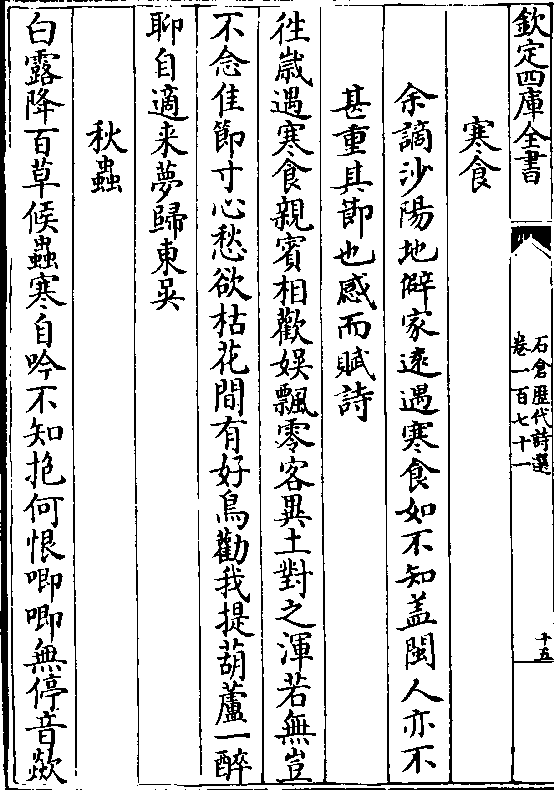 欽定四庫全書
石倉歴代詩選
卷一百七十一
十五
寒食
余謫沙陽地僻家遠遇寒食如不知盖閩人亦不
甚重其節也感而賦詩
徃歳遇寒食親賓相歡娛飄零客異土對之渾若無豈
不念佳節寸心愁欲枯花間有好鳥勸我提葫蘆一醉
聊自適来夢歸東吳
秋蟲
白露降百草候蟲寒自吟不知抱何恨唧唧無停音歘